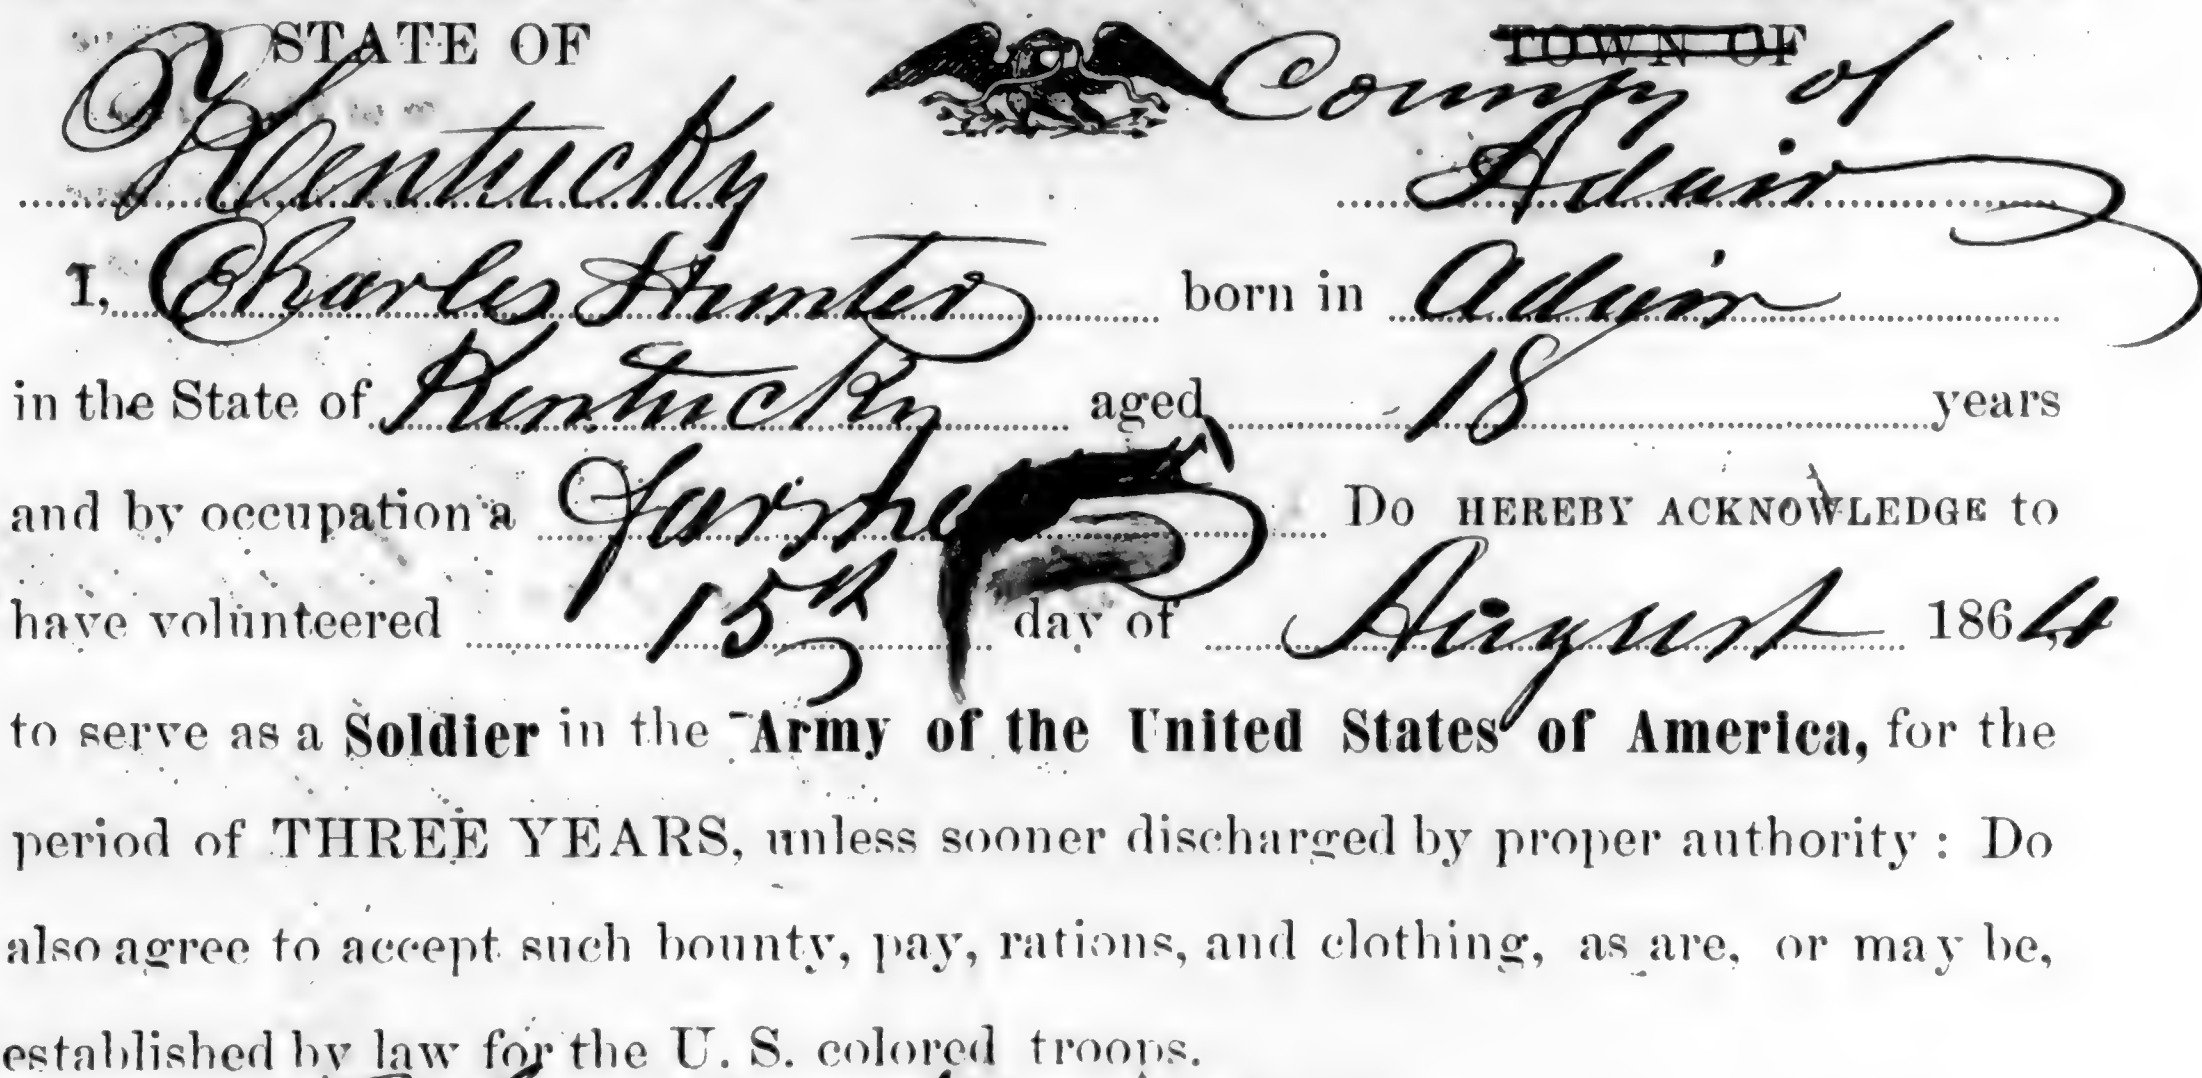 STATE OF TOWN OF
County of
Kentucky Adair
I, Charles Hunter born in Adair
in the State of Kentucky aged 18 years
and by occupation a Farmer Do HEREBY ACKNOWLEDGE to
have volunteered 15th day of August 1864
to serve as a Soldier in the Army of the United States of America, for the
period of THREE YEARS, unless sooner discharged by proper authority : Do
also agree to accept such bounty, pay, rations, and clothing, as are, or may be,
established by law for the U. S. colored troops.